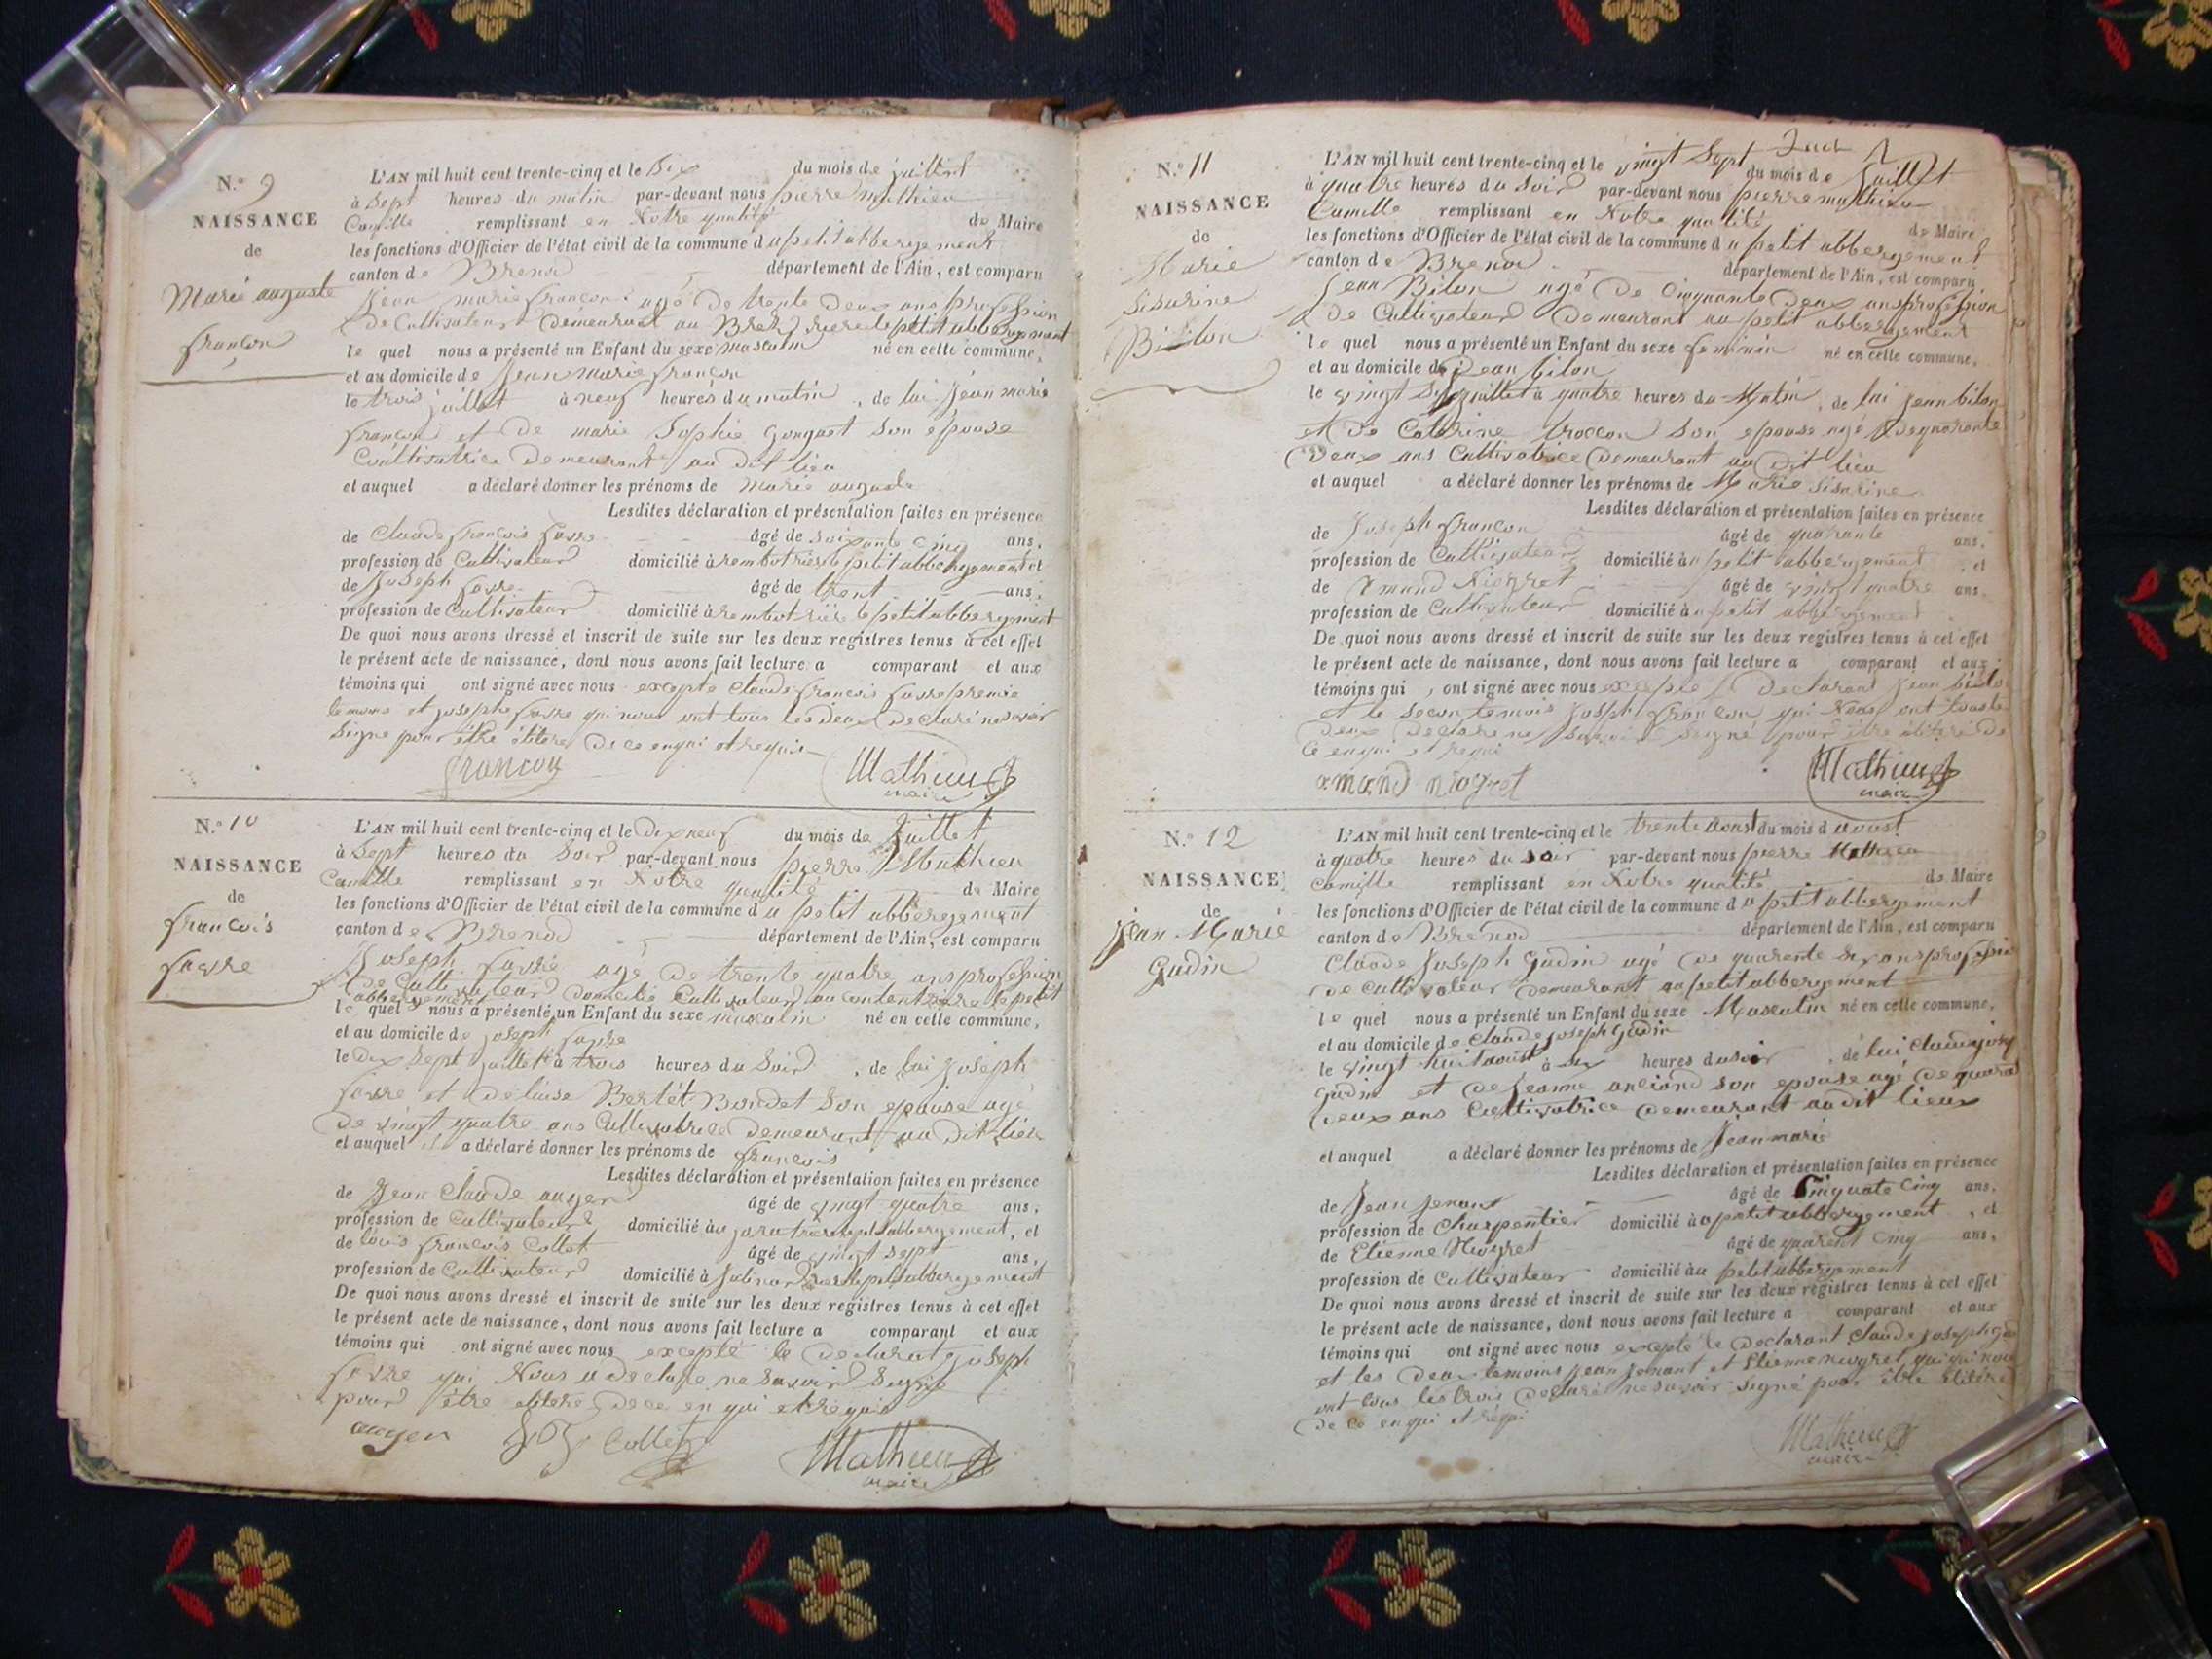 N.º 9
NAISSANCE
de
Marie auguste
françon
L'AN mil huit cent trente-cinq et le Six du mois de juillet
à Sept heures du matin par-devant nous pierre mathieu
Camille remplissant en Notre qualité de Maire
les fonctions d'Officier de l'état civil de la commune du petit abbergement
canton de Brenod département de l'Ain, est comparu
Jean marie françon agé de trente deux ans profession
de Cultivateur demeurant au petit abbergement
le quel nous a présenté un Enfant du sexe masculin né en cette commune,
et au domicile de Jean marie françon
le trois juillet à neuf heures du matin, de lui Jean marie
françon et de marie Sophie Gonguet son épouse
Coultivatrice demeurant au dit lieu
et auquel a déclaré donner les prénoms de Marie auguste
Lesdites déclaration et présentation faites en présence
de Claude françois favre âgé de soixante cinq ans,
profession de Cultivateur domicilié à rembot rière le petit abbergement et
de Joseph favre âgé de trent ans,
profession de Cultivateur domicilié à rembot rière le petit abbergement
De quoi nous avons dressé et inscrit de suite sur les deux registres tenus à cet effet
le présent acte de naissance, dont nous avons fait lecture a comparant et aux
témoins qui ont signé avec nous excepte Claude francois favre premie
temoins et joseph favre qui nous ont tous les deux declaré ne savoir
Signe pour être élitere de ce enqui et requi
françon Mathieu
maire
N.º 10
NAISSANCE
de
françois
favre
L'AN mil huit cent trente-cinq et le dix neuf du mois de Juillet
à Sept heures du Soir par-devant nous pierre Mathieu
Camille remplissant en Notre qualité de Maire
les fonctions d'Officier de l'état civil de la commune du petit abbergement
canton de Brenod département de l'Ain, est comparu
Joseph favre agé de trente quatre ans profession
de Cultivateur domicilié Cultivateur au rière le petit
abbergement
le quel nous a présenté un Enfant du sexe masculin né en cette commune,
et au domicile de joseph favre
le Dix Sept juillet à trois heures du Soir, de lui Joseph
favre et de Berlet Bondet Son epouse agé
de vingt quatre ans Cultivatrice demeurant au dit lieu
et auquel il a déclaré donner les prénoms de françois
Lesdites déclaration et présentation faites en présence
de Jean Claude auger âgé de vingt quatre ans,
profession de Cultivateur domicilié au petit abbergement, et
de louis françois Collet âgé de vingt sept ans,
profession de Cultivateur domicilié à petit abbergement
De quoi nous avons dressé et inscrit de suite sur les deux registres tenus à cet effet
le présent acte de naissance, dont nous avons fait lecture a comparant et aux
témoins qui ont signé avec nous excepté le declarat Joseph
favre qui Nous a declare ne Savoir Signé
pour être elitere de ce en qui et requi
auger Collet Mathieu
maire
N.º 11
NAISSANCE
de
Marie
Sisarine
Billon
L'AN mil huit cent trente-cinq et le vingt Sept du mois de Juillet
à quatre heures du Soir par-devant nous pierre mathieu
Camille remplissant en Notre qualité de Maire
les fonctions d'Officier de l'état civil de la commune du petit abbergement
canton de Brenod département de l'Ain, est comparu,
Jean Bilon agé de Cinquante deux ans profession
de Cultivateur demeurant au petit abbergement
le quel nous a présenté un Enfant du sexe feminin né en cette commune,
et au domicile de Jean bilon
le vingt juillet à quatre heures du Matin, de lui jean bilon
et de Caterine troccon son epouse agé de quarante
Deux ans Cultivatrice demeurant au dit lieu
et auquel a déclaré donner les prénoms de Marie Sisarine
Lesdites déclaration et présentation faites en présence
de Joseph françon âgé de quarante ans,
profession de Cultivateur domicilié au petit abbergement, et
de Amand Niogret âgé de vingt quatre ans
profession de Cultivateur domicilié au petit abbergement
De quoi nous avons dressé et inscrit de suite sur les deux registres tenus à cet effet
le présent acte de naissance, dont nous avons fait lecture a comparant et aux
témoins qui, ont signé avec nous excepte le Declarant Jean
et le Secon temois Joseph françon qui Nous ont
deux declare ne Savoir Signé pour être élitere de
ce enqui et requi
amand niogret Mathieu
maire
N.º 12
NAISSANCE
de
Jean Marie
Gudin
L'AN mil huit cent trente-cinq et le trente aoust du mois d aoust
à quatre heures du soir par-devant nous pierre Mathieu
Camille remplissant en Notre qualité de Maire
les fonctions d'Officier de l'état civil de la commune du petit abbergement
canton de Brenod département de l'Ain, est comparu
Claude Joseph Gudin agé de quarente six ans profession
de Cultivateur demeurant au petit abbergement
le quel nous a présenté un Enfant du sexe Masculin né en cette commune,
et au domicile de Claude joseph Gudin
le vingt huit aoust à six heures du soir, de lui Claude
Gudin et de Jeanne anciand son epouse agé de
deux ans Cultivatrice demeurant au dit lieux
et auquel a déclaré donner les prénoms de Jean marie
Lesdites déclaration et présentation faites en présence
de Jean Jenant âgé de Cinquate Cinq ans,
profession de Charpentier domicilié au petit abbergement, et
de Etienne Niogret âgé de quarent Cinq ans,
profession de Cultivateur domicilié au petit abbergement
De quoi nous avons dressé et inscrit de suite sur les deux registres tenus à cet effet
le présent acte de naissance, dont nous avons fait lecture a comparant et aux
témoins qui ont signé avec nous excepté le Declarant Claude Joseph
et les Deux temoins Jean Jenant et Etienne niogret qui qui nous
ont tous les trois Declaré ne savoir Signé pour être élitere
de ce enqui et requi
Mathieu
maire